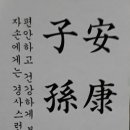 安康
子孫
편안하고 건강하게
자손에게는